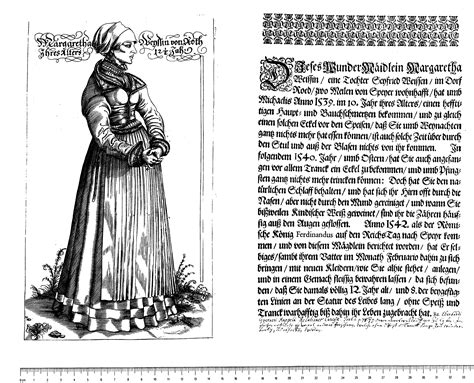 Margaretha Weyssin von Roth
Ihres Alters 12 Jah.
Dieses Wunder Mäidlein Margaretha
Weissin / eine Tochter Seyfried Weissen / im Dorf
Roed / zwo Meilen von Speyer wohnhafft / hat umb
Michaelis Anno 1539. im 10. Jahr ihres Alters / einen hefftigen
Haupt- und Bauchschmertzen bekommen / und zu gleich
einen solchen Eckel vor den Speisen / daß Sie umb Weynachten
gantz nichts mehr hat essen können / ist auch solche Zeit über durch
den Stul und auß der Blasen nichts von ihr kommen. In
folgendem 1540. Jahr / umb Ostern / hat Sie auch angefangen
vor allem Tranck ein Eckel zubekommen / und umb Pfingsten
gantz nichts mehr trincken können: Doch hat Sie den natürlichen
Schlaff behalten / und hat sich ihr Hirn offt durch die
Nasen / aber nicht durch den Mund gereiniget / und wann Sie
bißweilen Kindischer Weiß geweinet / sind ihr die Zähren häuffig
auß den Augen geflossen. Anno 1542. als der Römische
König Ferdinandus auf den Reichs Tag nach Speyr kommen
/ und von diesem Mägdlein berichtet worden / hat Er selbiges
/ sambt ihrem Vatter im Monath Februario dahin zu sich
bringen / mit neuen Kleidern / wie Sie alhie stehet / anlegen /
und in einem Gemach fleissig bewahren lassen / da sich befunden
/ daß Sie damals völlig 12. Jahr alt / und 8. der beygefügten
Linien an der Statur des Leibes lang / ohne Speiß und
Tranck warhafftig biß dahin ihr Leben zugebracht hat.